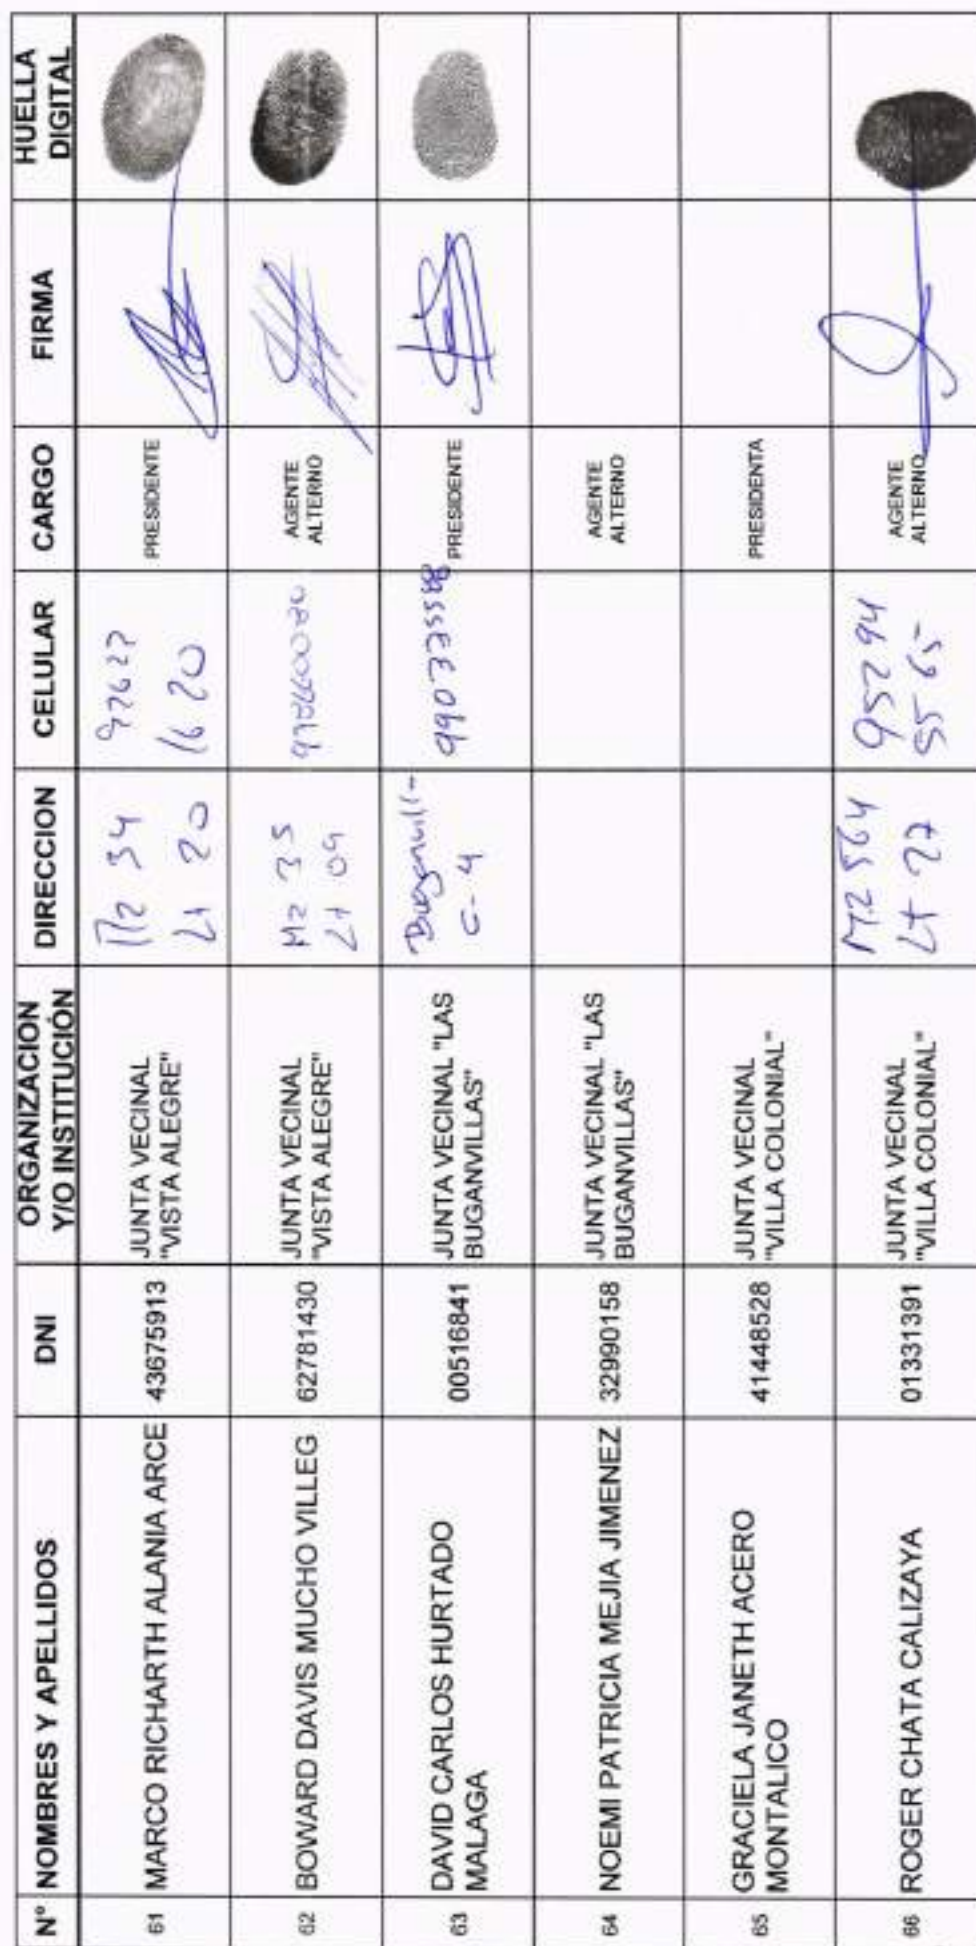 N° NOMBRES Y APELLIDOS DNI ORGANIZACION Y/O INSTITUCIÓN DIRECCION CELULAR CARGO FIRMA HUELLA DIGITAL
61 MARCO RICHARTH ALANIA ARCE 43675913 JUNTA VECINAL "VISTA ALEGRE" Mz 34 Lt 20 1620 PRESIDENTE
62 BOWARD DAVIS MUCHO VILLEG 62781430 JUNTA VECINAL "VISTA ALEGRE" Mz 35 Lt 09 AGENTE ALTERNO
63 DAVID CARLOS HURTADO MALAGA 00516841 JUNTA VECINAL "LAS BUGANVILLAS" C-4 PRESIDENTE
64 NOEMI PATRICIA MEJIA JIMENEZ 32990158 JUNTA VECINAL "LAS BUGANVILLAS" AGENTE ALTERNO
65 GRACIELA JANETH ACERO MONTALICO 41448528 JUNTA VECINAL "VILLA COLONIAL" PRESIDENTA
66 ROGER CHATA CALIZAYA 01331391 JUNTA VECINAL "VILLA COLONIAL" Mz 564 Lt 27 95294 5565 AGENTE ALTERNO